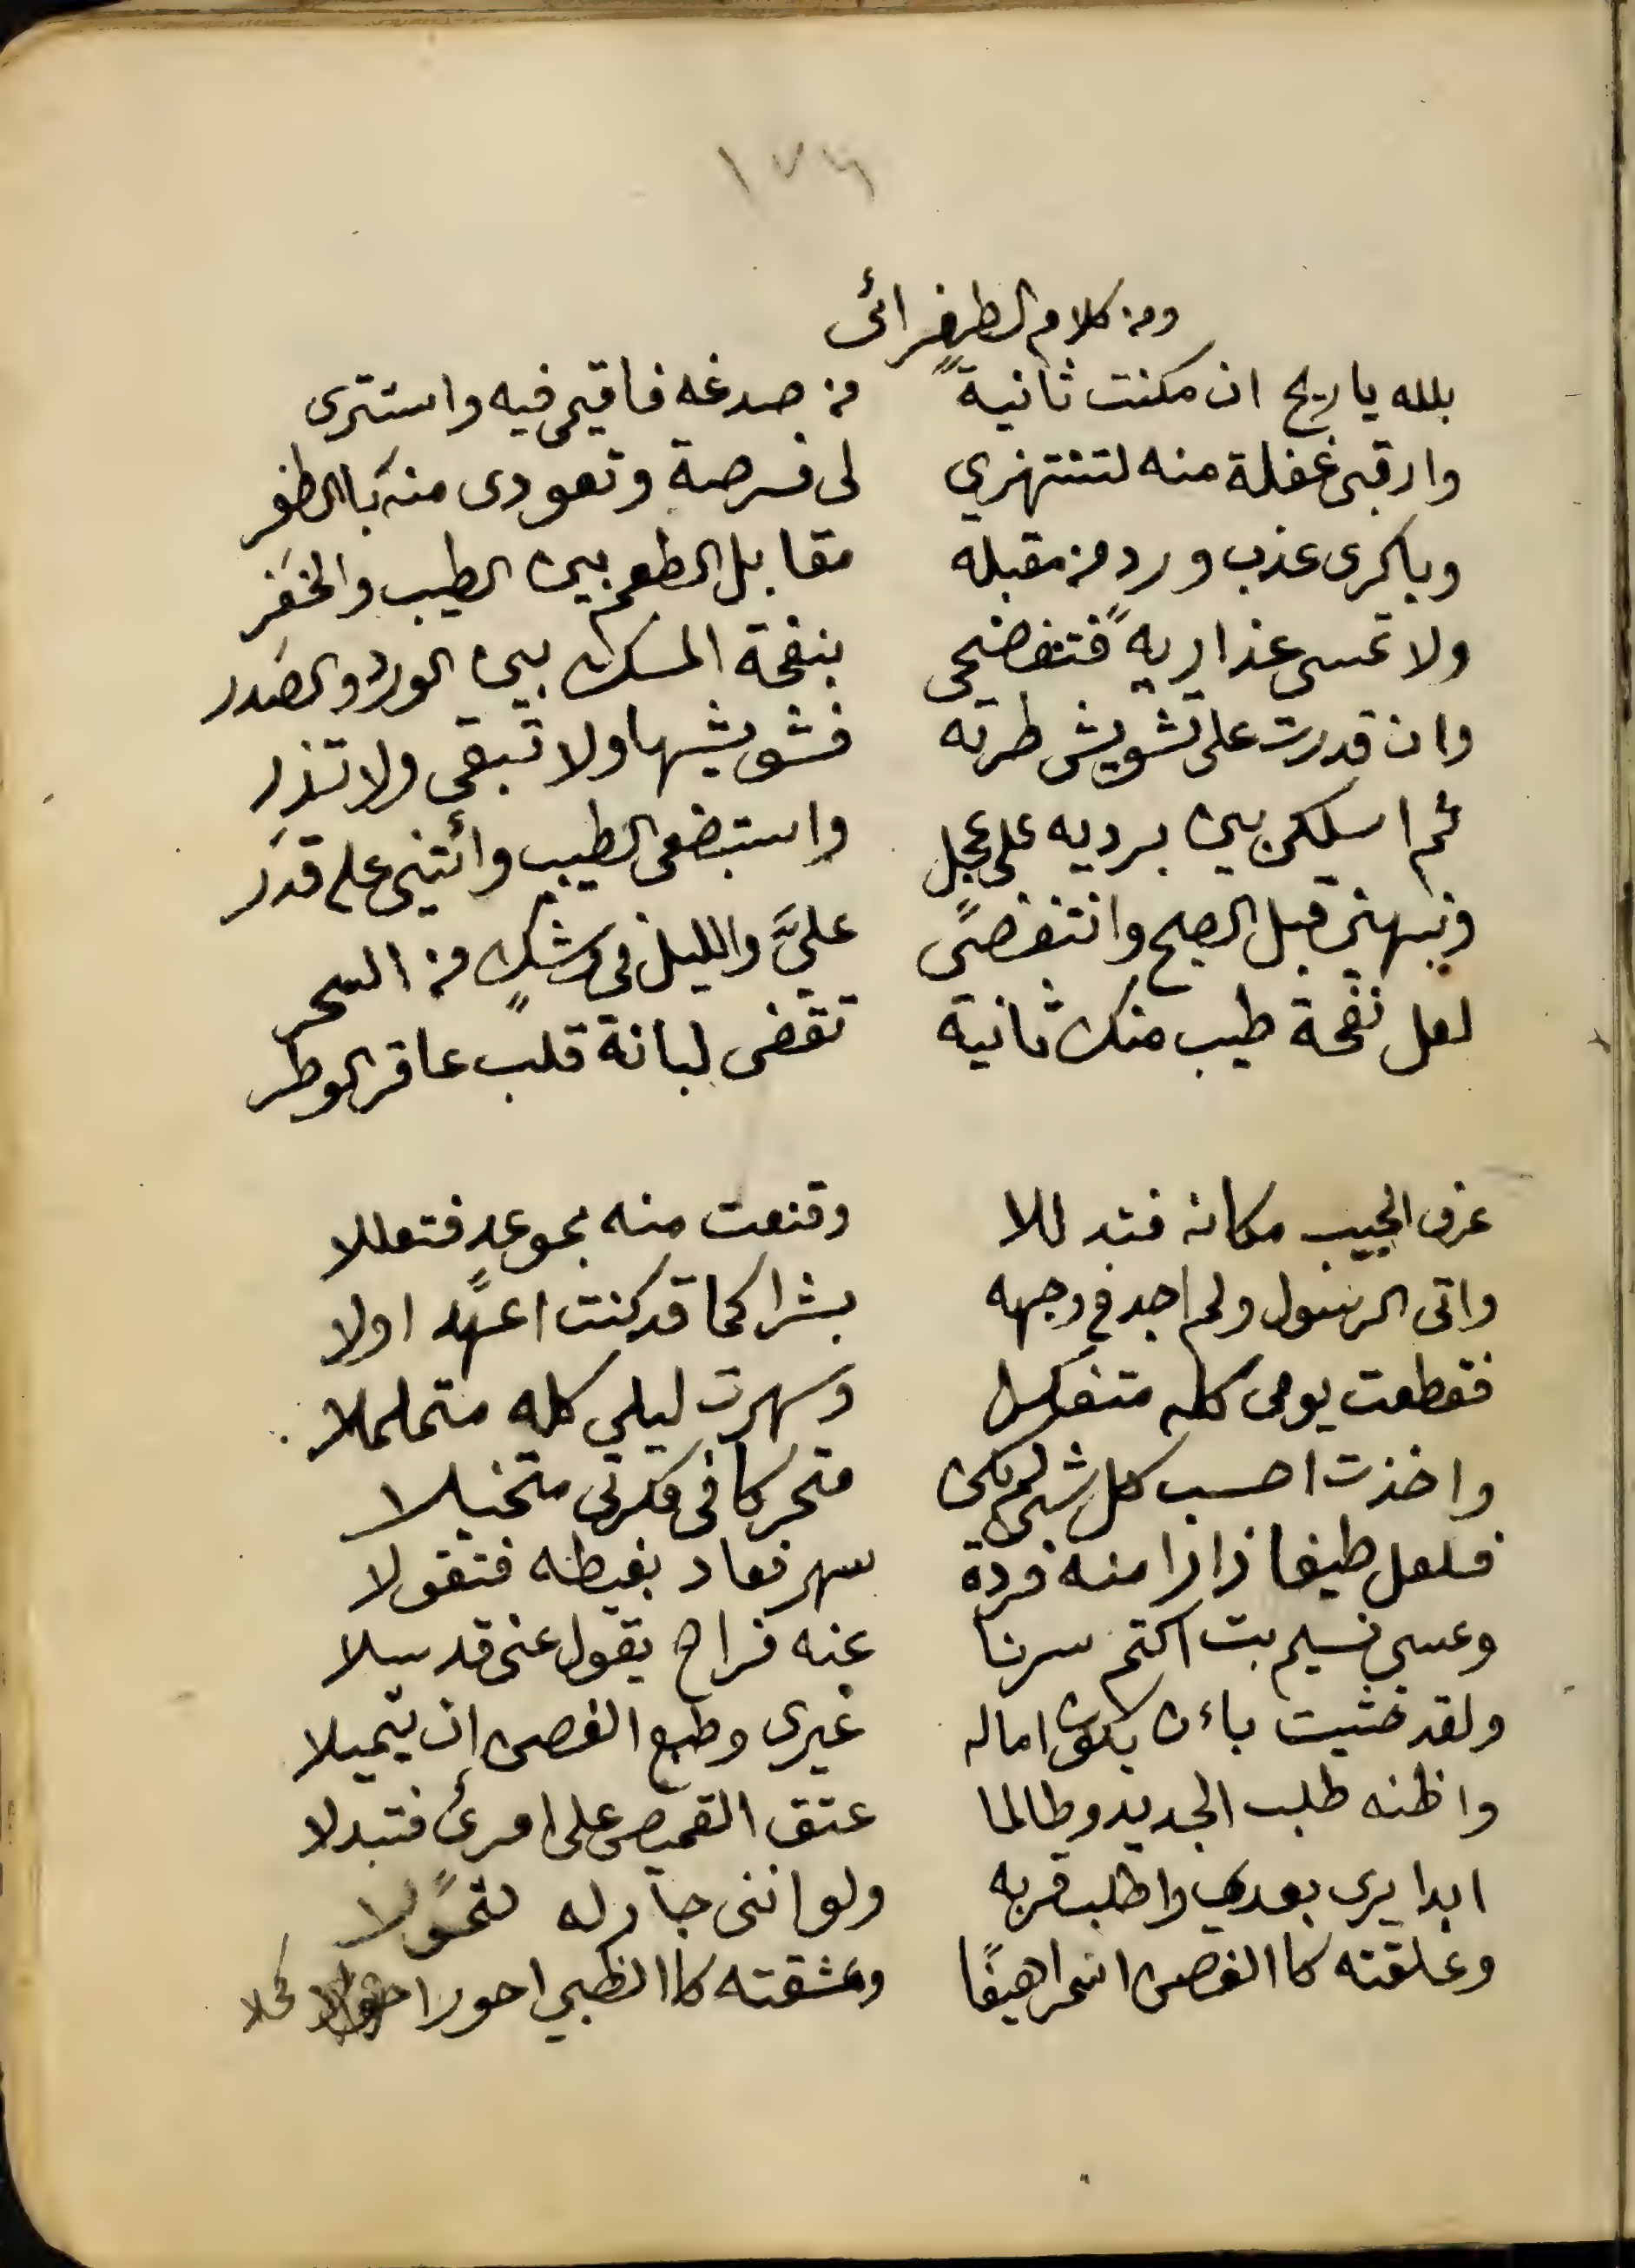 ١٧٦
ومن كلام الطغرائى
بلله ياريح ان مكنت ثانيةً من صدغه فاقيمى فيه واستترى
وارقبى غفلة منه لتنتهزي لى فرصة وتعودى منه باالظفر
وباكرى عذب ورد من مقبله مقابل الطعم بين الطيب والخفر
ولا تمسى عذاريه فتفضحى بنفحة المسك بين الورد والصدر
وان قدرت على تشويش طرته فشوشيها ولا تبقى ولا تذر
ثم اسلكى بين برديه على عجل واستبضعى الطيب وائتينى على قدر
ونبهينى قبل الصبح وانتفضى عليَّ والليل فى شكٍ من السحر
لعل نفحة طيب منك ثانية تقضى لبانة قلب عاقر الوطر
عرف الحبيب مكانه فتدللا وقنعت منه بموعد فتعللا
واتى الرسول ولم اجد فى وجهه بشرا كما قد كنت اعهد اولا
فقطعت يومى كله متفكرا وسهرت ليلي كله متململا
واخذت احسب كل شى لم يكن متحركا فى فكرتى متخيلا
فلعل طيفا زارا منه فرده سهر فعاد بغيظه فتقولا
وعسى نسيم بت اكتم سرنا عنه فراح يقول عنى قد سلا
ولقد خشيت باءن يكون اماله غيرى وطبع الغصن ان يتميلا
واظنه طلب الجديد وطالما عتق القميص على امرئ فتبدلا
ابدا يرى بعدي واطلب قربه ولو اننى جار له لتحولا
وعلقته كاالغصن اسمر اهيفًا وعشقته كاالظبي احورا كحلا